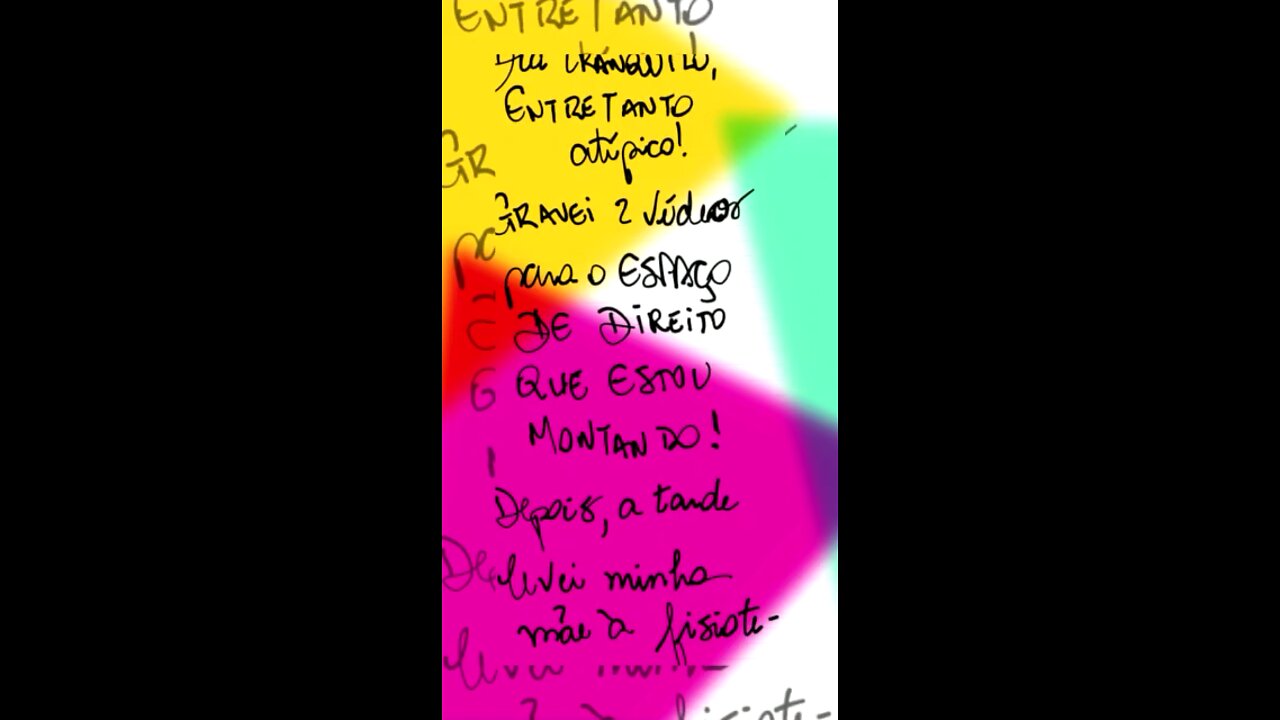 ENTRETANTO
TRANQUILO,
ENTRETANTO
atípico!
GRAVEI 2 vídeos
para o ESPAÇO
DE DIREITO
QUE ESTOU
MONTANDO!
Depois, a tarde
levei minha
mãe à fisiote-